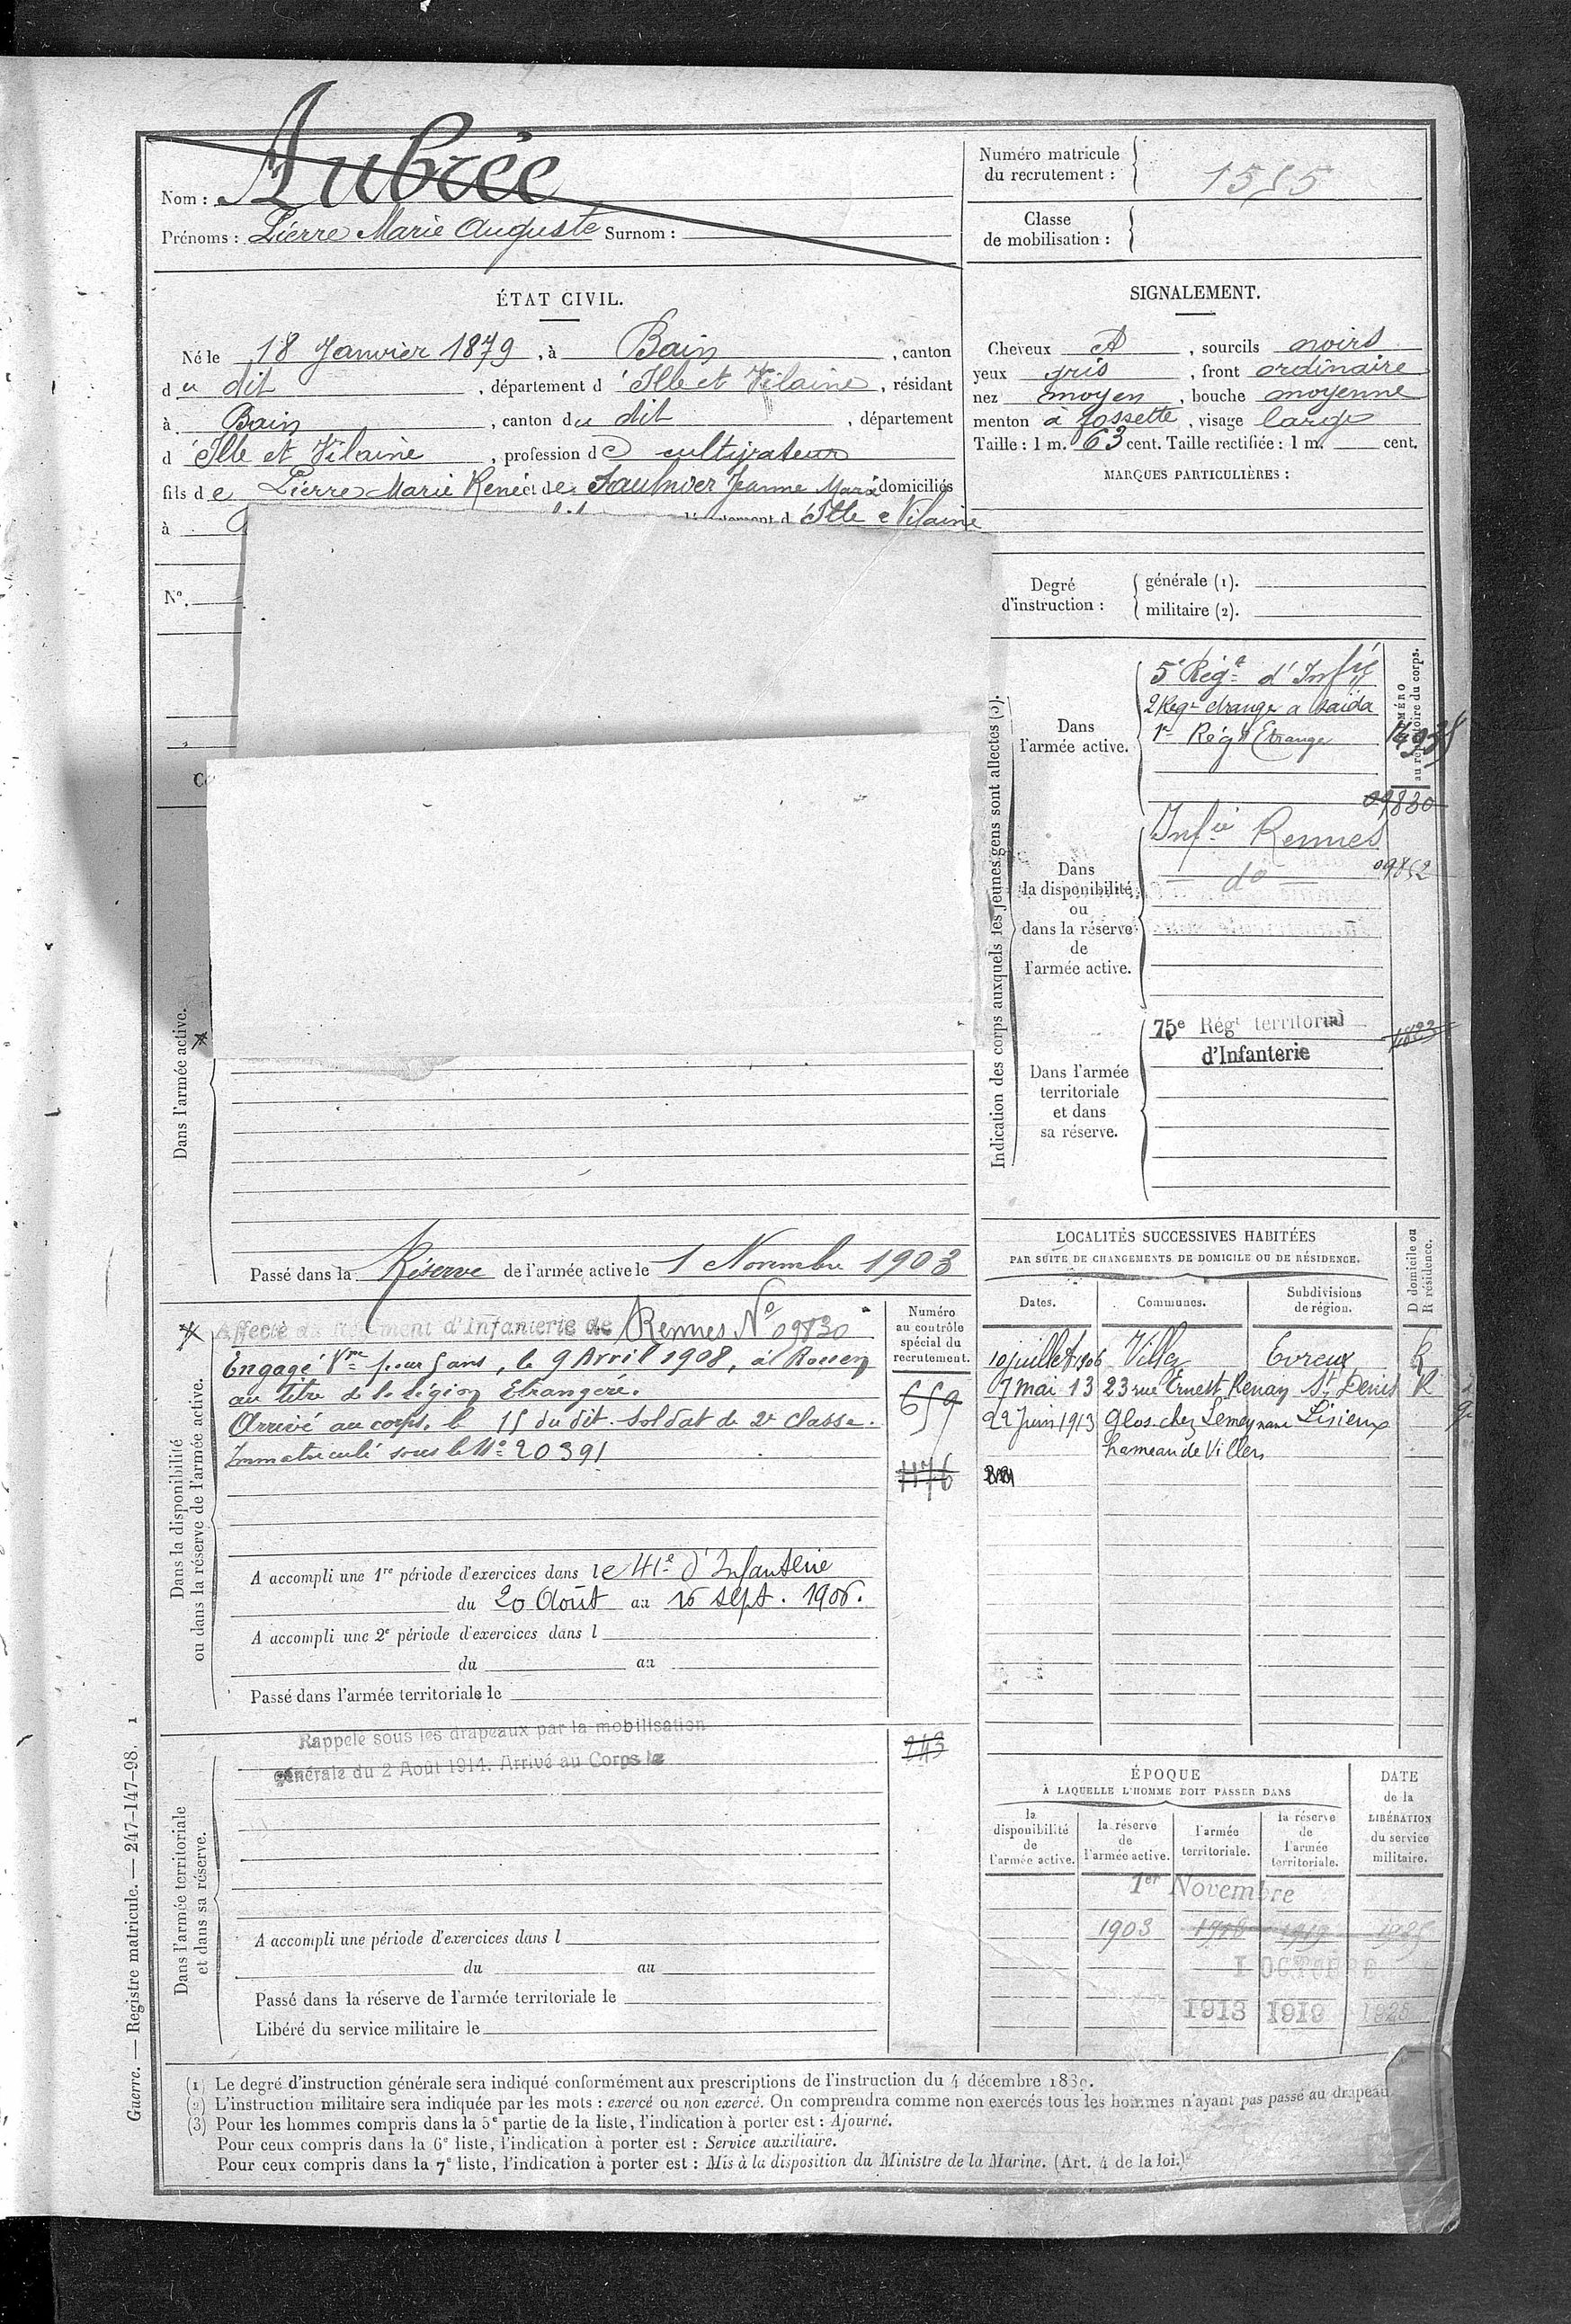 Nom : Aubrée
Prénoms : Pierre Marie Auguste Surnom :
Numéro matricule
du recrutement :
Classe
de mobilisation :
ÉTAT CIVIL.
Né le 18 Janvier 1879, à Bain, canton
du dit, département d'Ille et Vilaine, résidant
à Bain, canton du dit, département
d'Ille et Vilaine, profession d cultivateur
fils de Pierre Marie René et de Saulnier Jeanne Marie domiciliés
à département d Ille e Vilaine
N°.
SIGNALEMENT.
Cheveux et, sourcils noirs
yeux gris, front ordinaire
nez moyen, bouche moyenne
menton à fossette, visage large
Taille : 1 m. 63 cent. Taille rectifiée : 1 m. cent.
MARQUES PARTICULIÈRES :
Degré
d'instruction :
générale (1).
militaire (2).
Indication des corps auxquels les jeunes gens sont affectés (3).
NUMÉRO
au répertoire du corps.
Dans
l'armée active.
5e Régt d'Infie
2 Regt etranger a Saida
1r Régt Etranger
09830
Dans
la disponibilité
ou
dans la réserve
de
l'armée active.
Infie Rennes
do
09852
Dans l'armée
territoriale
et dans
sa réserve.
75e Régt territorial
d'Infanterie
Dans l'armée active.
Passé dans la Réserve de l'armée active le 1 Novembre 1903
Dans la disponibilité
ou dans la réserve de l'armée active.
Affecté au Régiment d'Infanterie de Rennes No 09830
Engagé Vre pour 5 ans, le 9 Avril 1908, à Rouen
au titre de la Légion Etrangère.
Arrivé au corps. le 15 du dit. soldat de 2e classe.
Immatriculé sous le No 20391
A accompli une 1re période d'exercices dans le 41e d'Infanterie
du 20 Août au 16 sept. 1906.
A accompli une 2e période d'exercices dans l
du au
Passé dans l'armée territoriale le
Numéro
au contrôle
spécial du
recrutement.
659
1176
243
LOCALITÉS SUCCESSIVES HABITÉES
PAR SUITE DE CHANGEMENTS DE DOMICILE OU DE RÉSIDENCE.
D domicile ou
R résidence.
Dates. Communes. Subdivisions
de région.
10 juillet 1906 Evreux R
7 mai 13 23 rue Ernest Renan St Denis R
22 Juin 1913 Glos. chez Lisieux
hameau de Villers
Dans l'armée territoriale
et dans sa réserve.
Rappelé sous les drapeaux par la mobilisation
générale du 2 Août 1914. Arrivé au Corps le
A accompli une période d'exercices dans l
du au
Passé dans la réserve de l'armée territoriale le
Libéré du service militaire le
ÉPOQUE
À LAQUELLE L'HOMME DOIT PASSER DANS
la
disponibilité
de
l'armée active.
la réserve
de
l'armée active.
l'armée
territoriale.
la réserve
de
l'armée
territoriale.
DATE
de la
LIBÉRATION
du service
militaire.
1er Novembre
1903 1919
1 OCTOBRE
1913 1919 1925
(1) Le degré d'instruction générale sera indiqué conformément aux prescriptions de l'instruction du 4 décembre 1889.
(2) L'instruction militaire sera indiquée par les mots : exercé ou non exercé. On comprendra comme non exercés tous les hommes n'ayant pas passé au drapeau.
(3) Pour les hommes compris dans la 5e partie de la liste, l'indication à porter est : Ajourné.
Pour ceux compris dans la 6e liste, l'indication à porter est : Service auxiliaire.
Pour ceux compris dans la 7e liste, l'indication à porter est : Mis à la disposition du Ministre de la Marine. (Art. 4 de la loi.)
Guerre. — Registre matricule. — 247-147-98. 1